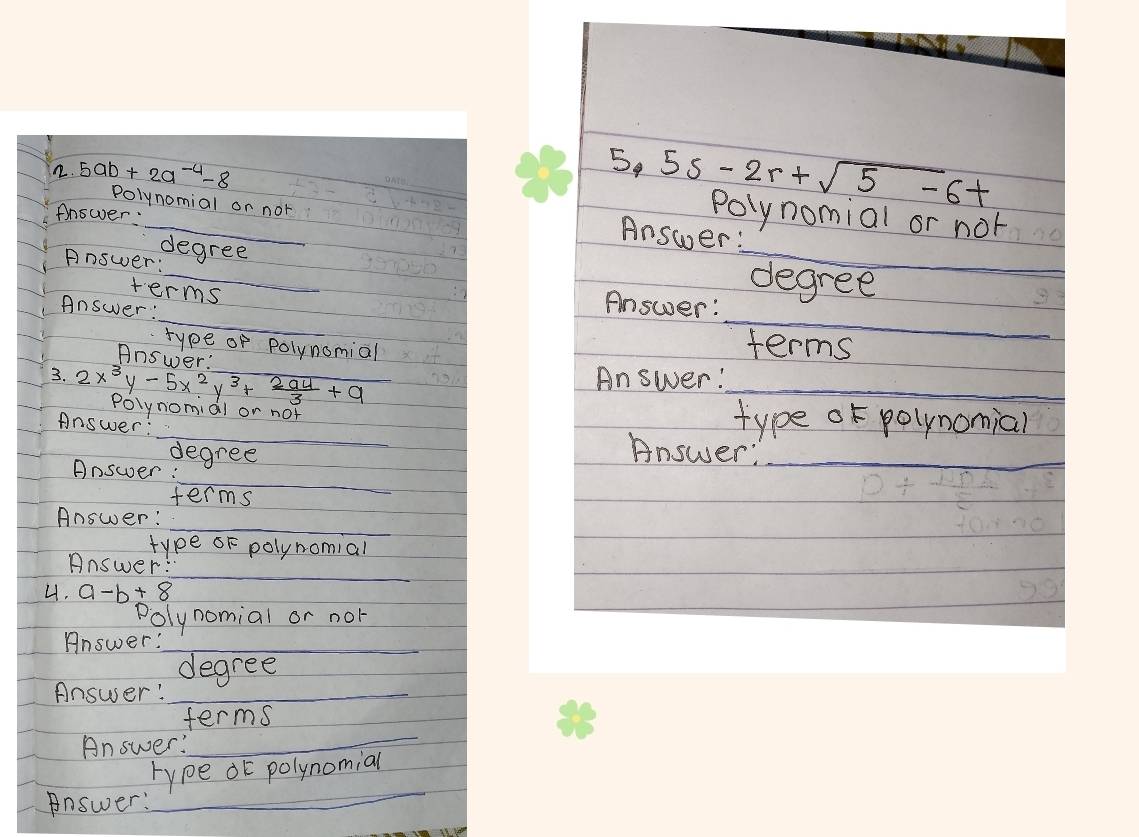 2. 5ab + 2a⁻⁴ - 8
Polynomial or not
Answer:
degree
Answer:
terms
Answer:
type of Polynomial
Answer:
3. 2x³y - 5x²y³ + 2a4/3 + 9
Polynomial or not
Answer:
degree
Answer:
terms
Answer:
type of polynomial
Answer:
4. a-b+8
Polynomial or not
Answer:
degree
Answer:
terms
Answer:
type of polynomial
Answer:
5. 5s - 2r + √5 - 6t
Polynomial or not
Answer:
degree
Answer:
terms
Answer:
type of polynomial
Answer: